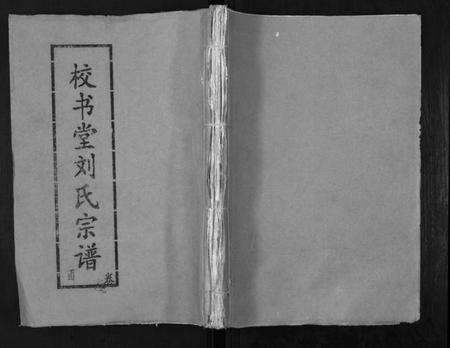 校书堂刘氏宗谱
卷
酉